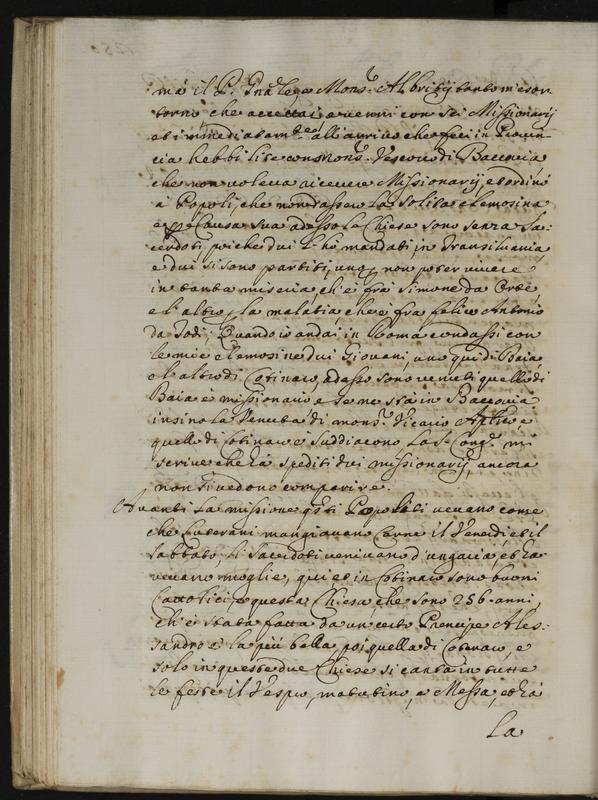 mà il P. Gnãle, e Mons.r Albritij tanto m'esor-
torno che accettai, e venni con sei Missionarij
et immediatam.te all'arrivo che feci in Provin-
cia hebbi lite con Mons.r Vescovo di Bacovia
che non voleva ricevere Missionarij, et ordinò
a Popoli, che non dassero la solita elemosina
e p Causa sua adesso le Chiese sono senza Sa:
cerdoti, poiche dui l'hò mandati in Transilvania
e dui si sono partiti, uno p non poter vivere
in tanta miseria, ch'è frà Simone da
e l'altro p la malatia, che è frà felice Antonio
da Todi; Quando io andai in Roma condussi con
le mie elemosine dui Giovani, uno quì di Baia
e l'altro di Cotinaro, adesso sono venuti quello di
Baia è missionario e se ne stà in Bacovia
insino la Venuta di mons.r Vicario Aplico, e
quello di Cotinaro è suddiacono. La S. Cong.e mi
scrive che hà spediti dui missionarij, ancora
non si vedono comparire.
Avanti la missione q̃sti Popoli tti vevano come
che Luterani mangiavano Carne il Venerdi et il
Sabbato, li Sacerdoti venivano d'ungaria, et ha-
vevano moglie, quì et in Cotinaro sono buoni
Cattolici, e questa Chiesa, che sono 256. anni
ch'è stata fatta da un certo Prencipe Ales:
sandro è la più bella, poi quella di Cotnaro, e
solo in queste due Chiese si canta in tutte
le feste il Vespro, matutino, e Messa, et hà
La